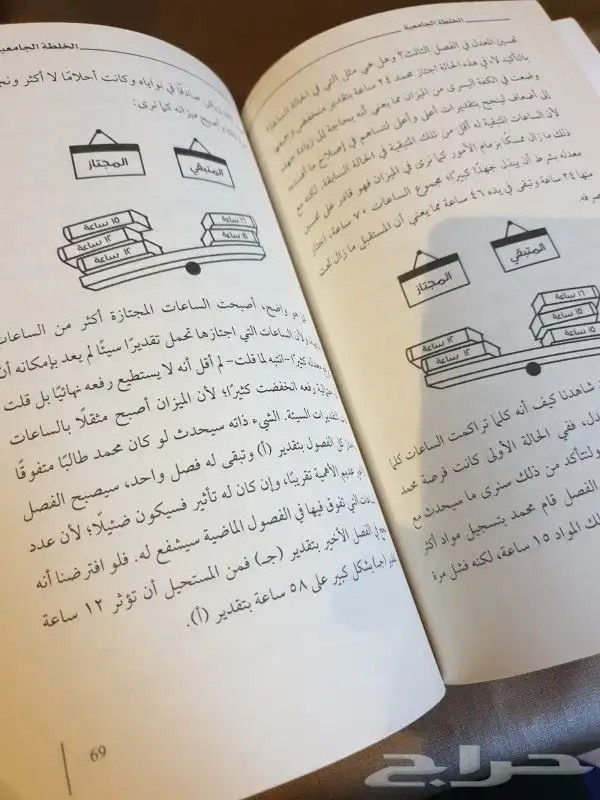 الخلطة الجامعية
تحسين المعدل في الفصل الثالث؟ وهل هي مثل التي في الحالة السابقة؟
بالتأكيد لا، في هذه الحالة اجتاز محمد ٢٤ ساعة بتقدير منخفض
وضعت في الكفة اليسرى من الميزان مما يعني أنه بحاجة إلى زيادة جهده
إلى أضعاف لينجح بتقديرات أعلى وأعلى لتساهم في إصلاح ما أفسده
لأن الساعات المتبقية له أقل من تلك المتبقية في الحالة السابقة. لكنه مع
ذلك ما زال ممسكًا بزمام الأمور كما نرى في الميزان فهو قادر على تحسين
معدله بشرط أن يبذل جهدًا كبيرًا؛ مجموع الساعات ٧٠ ساعة، اجتاز
منها ٢٤ ساعة وتبقى في يده ٤٦ ساعة مما يعني أن المستقبل ما زال تحت
المتبقي
المجتاز
١٦ ساعة
١٥ ساعة
١٥ ساعة
١٢ ساعة
١٢ ساعة
شاهدنا كيف أنه كلما تراكمت الساعات كلما
ففي الحالة الأولى كانت فرصة محمد
ولنتأكد من ذلك سنرى ما سيحدث مع
الفصل قام محمد بتسجيل مواد أكثر
المواد ١٥ ساعة، لكنه فشل مرة
الخلطة الجامعية
صادقًا في نواياه وكانت أحلامًا لا أكثر
وأصبح ميزانه كما نرى:
المتبقي
المجتاز
١٦ ساعة
١٥ ساعة
١٥ ساعة
١٢ ساعة
١٢ ساعة
هو واضح، أصبحت الساعات المجتازة أكثر من الساعات
ولأن الساعات التي اجتازها تحمل تقديرًا سيئًا لم يعد بإمكانه أن
معدله كثيرًا -انتبه لما قلت- لم أقل أنه لا يستطيع رفعه نهائيًا بل قلت
رفعه انخفضت كثيرًا؛ لأن الميزان أصبح مثقلًا بالساعات
التقديرات السيئة. الشيء ذاته سيحدث لو كان محمد طالبًا متفوقًا
كل الفصول بتقدير (أ) وتبقى له فصل واحد، سيصبح الفصل
عديم الأهمية تقريبًا، وإن كان له تأثير فسيكون ضئيلًا؛ لأن عدد
التي تفوق فيها في الفصول الماضية سيشفع له. فلو افترضنا أنه
في الفصل الأخير بتقدير (جـ) فمن المستحيل أن تؤثر ١٢ ساعة
بشكل كبير على ٥٨ ساعة بتقدير (أ).
69
حراج